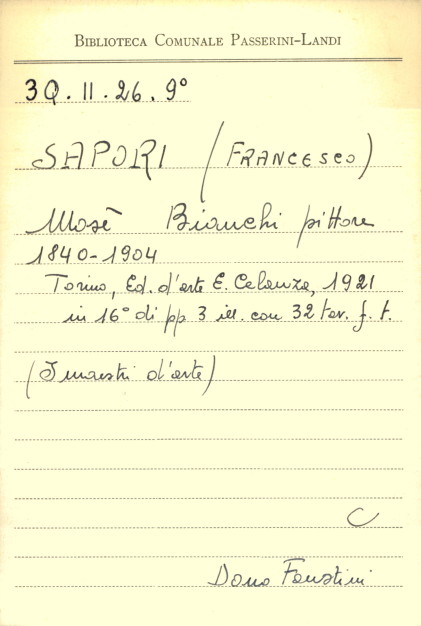 BIBLIOTECA COMUNALE PASSERINI-LANDI
3Q. II. 26. 9°
SAPORI (FRANCESCO)
Mosè Bianchi pittore
1840-1904
Torino, Ed. d'arte E. Celanza, 1921
in 16° di pp 3 ill. con 32 tav. f. t.
(I maestri d'arte)
C
Dono Faustini